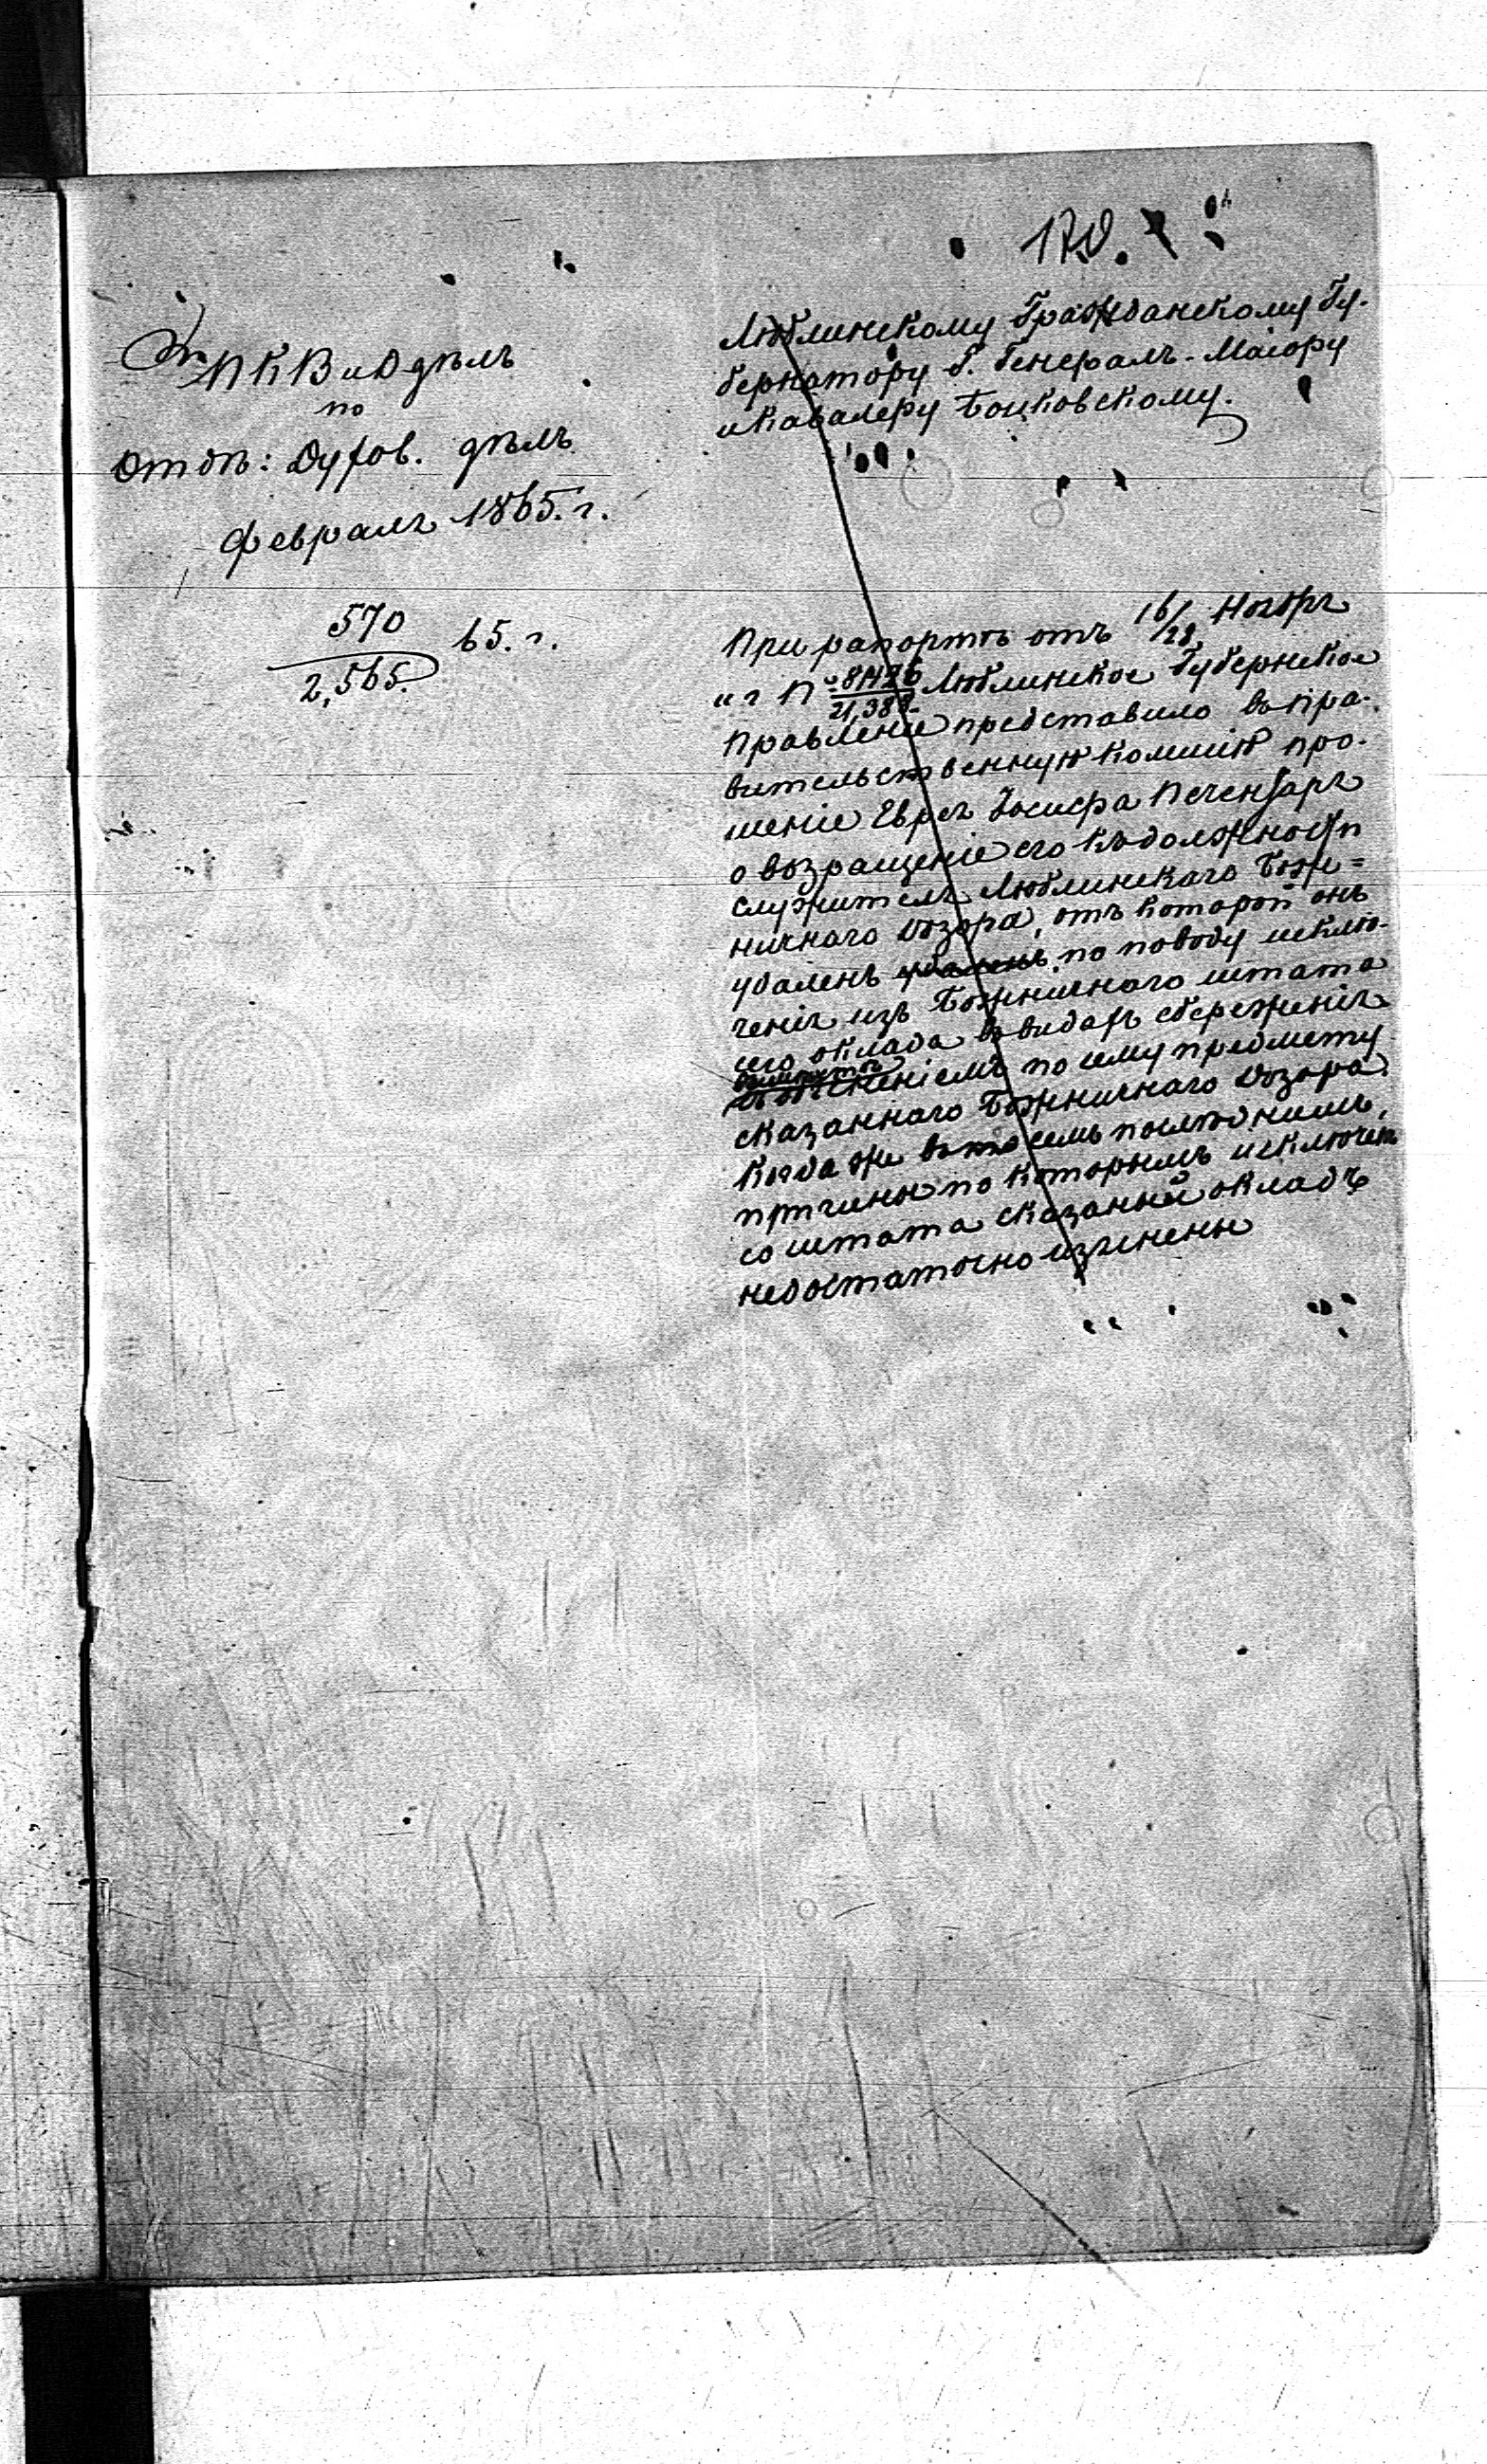 170.
ПКВиД дѣлъ
по
Отдѣ: Духов. дѣлъ
Февраля 1865. г.
570
2,565. 65. г.
Люблинскому Гражданскому Гу-
бернатору Г. Генералъ-Маіору
и Кавалеру Боцковскому.
При рапортѣ отъ 16/28 Ноября
Люблинское Губернское
Правленіе представило въ Пра-
вительственную Коммисію про-
шеніе Еврея Іосифа
о возращеніе его къ должности
служителя Люблинскаго Бож=
ничнаго Дозора, отъ которой онъ
удаленъ удаленъ по поводу исклю-
ченія изъ Божничнаго штата
сего оклада въ видахъ сбереженія
по сему предмету
сказаннаго Божничнаго Дозора.
Когда же въ
причины по которымъ исключенъ
со штата сказанный окладъ
недостаточно изяснены